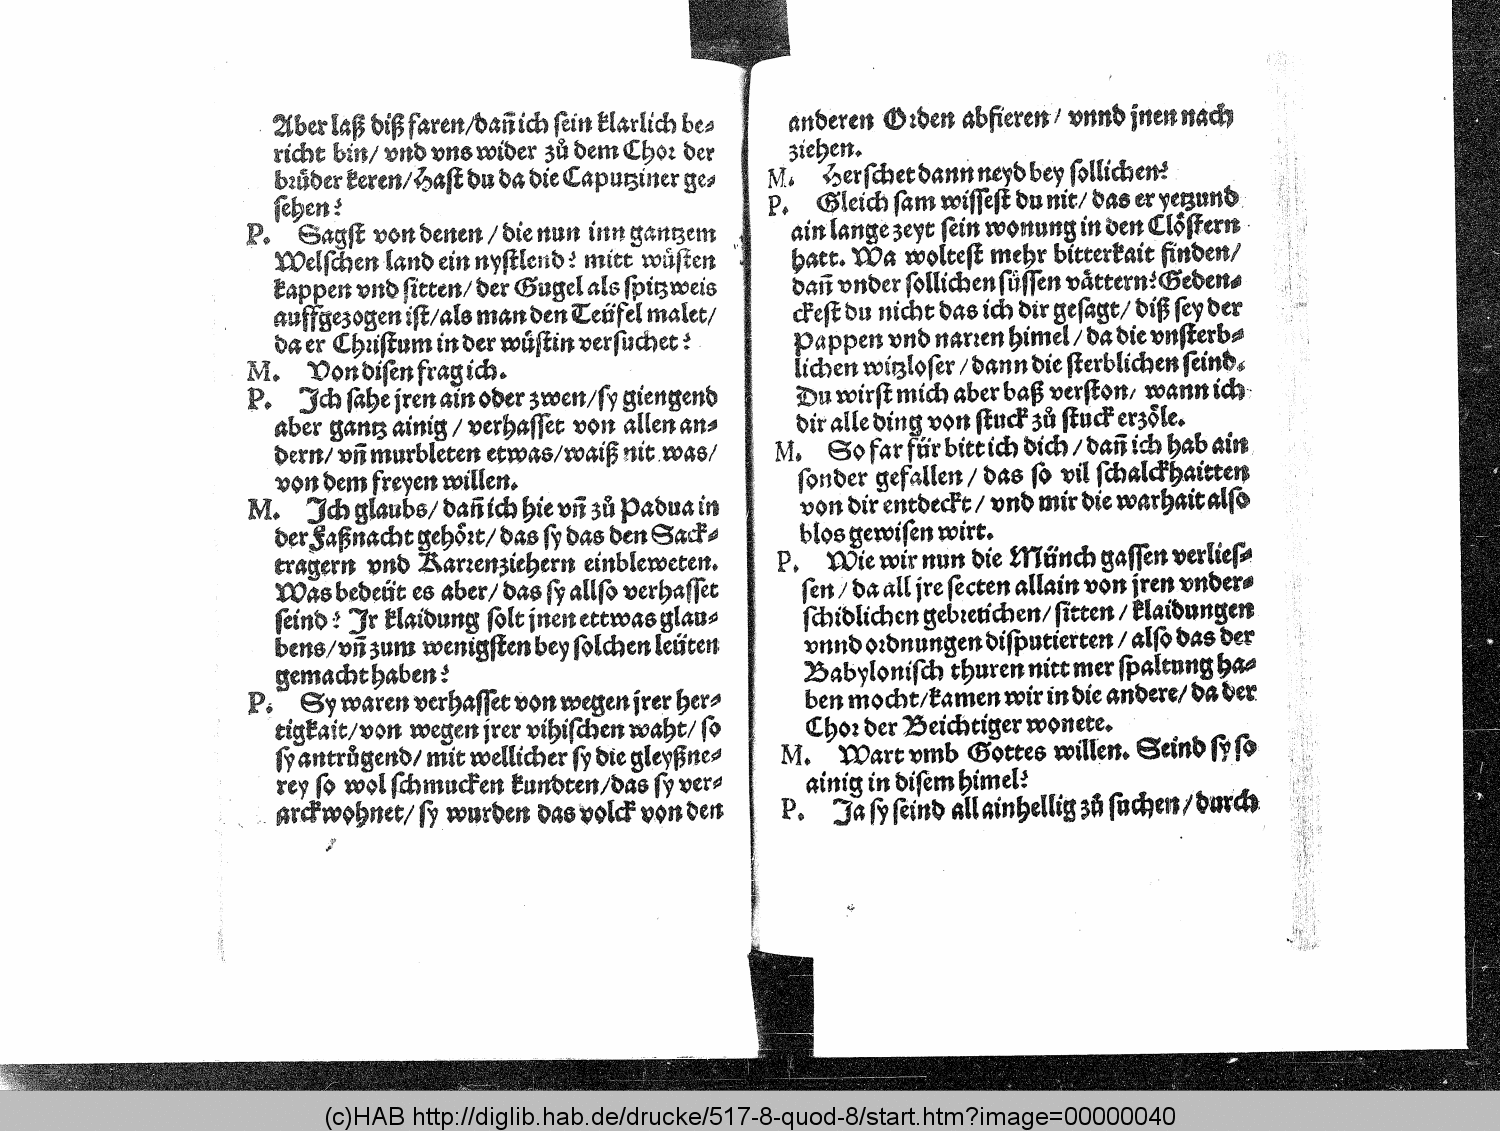 Aber laß diß faren/dañ ich sein klarlich be⸗
richt bin/ vnd vns wider zů dem Chor der
brůder keren/Hast du da die Caputziner ge⸗
sehen?
P. Sagst von denen / die nun inn gantzem
Welschen land ein nystlend? mitt wůsten
kappen vnd sitten/ der Gugel als spitzweis
auffgezogen ist/als man den Teüfel malet/
da er Christum in der wůstin versuchet?
M. Von disen frag ich.
P. Ich sahe jren ain oder zwen/sy giengend
aber gantz ainig / verhasset von allen an⸗
dern/ vñ murbleten etwas/waiß nit was/
von dem freyen willen.
M. Ich glaubs/ dañ ich hie vñ zů Padua in
der Faßnacht gehört/ das sy das den Sack⸗
tragern vnd Karrenziehern einbleweten.
Was bedeüt es aber/ das sy allso verhasset
seind? Ir klaidung solt jnen ettwas glau⸗
bens/vñ zum wenigsten bey solchen leüten
gemacht haben?
P. Sy waren verhasset von wegen jrer her⸗
tigkait/von wegen jrer vihischen waht/ so
sy antrůgend/ mit wellicher sy die gleyßne⸗
rey so wol schmucken kundten/das sy ver⸗
arckwohnet/ sy wurden das volck von den
anderen Orden abfieren / vnnd jnen nach
ziehen.
M. Herschet dann neyd bey sollichen?
P. Gleich sam wissest du nit/ das er yetzund
ain lange zeyt sein wonung in den Clöstern
hatt. Wa woltest mehr bitterkait finden/
dañ vnder sollichen süssen vättern? Geden⸗
ckest du nicht das ich dir gesagt/ diß sey der
Pappen vnd narren himel / da die vnsterb⸗
lichen witzloser / dann die sterblichen seind.
Du wirst mich aber baß verston/ wann ich
dir alle ding von stuck zů stuck erzöle.
M. So far für bitt ich dich / dañ ich hab ain
sonder gefallen / das so vil schalckhaitten
von dir entdeckt / vnd mir die warhait also
blos gewisen wirt.
P. Wie wir nun die Münch gassen verlies⸗
sen / da all jre secten allain von jren vnder⸗
schidlichen gebreüchen/ sitten / klaidungen
vnnd ordnungen disputierten / also das der
Babylonisch thuren nitt mer spaltung ha⸗
ben mocht/kamen wir in die andere/ da der
Chor der Beichtiger wonete.
M. Wart vmb Gottes willen. Seind sy so
ainig in disem himel?
P. Ja sy seind all ainhellig zů suchen/ durch
(c)HAB http://diglib.hab.de/drucke/517-8-quod-8/start.htm?image=00000040